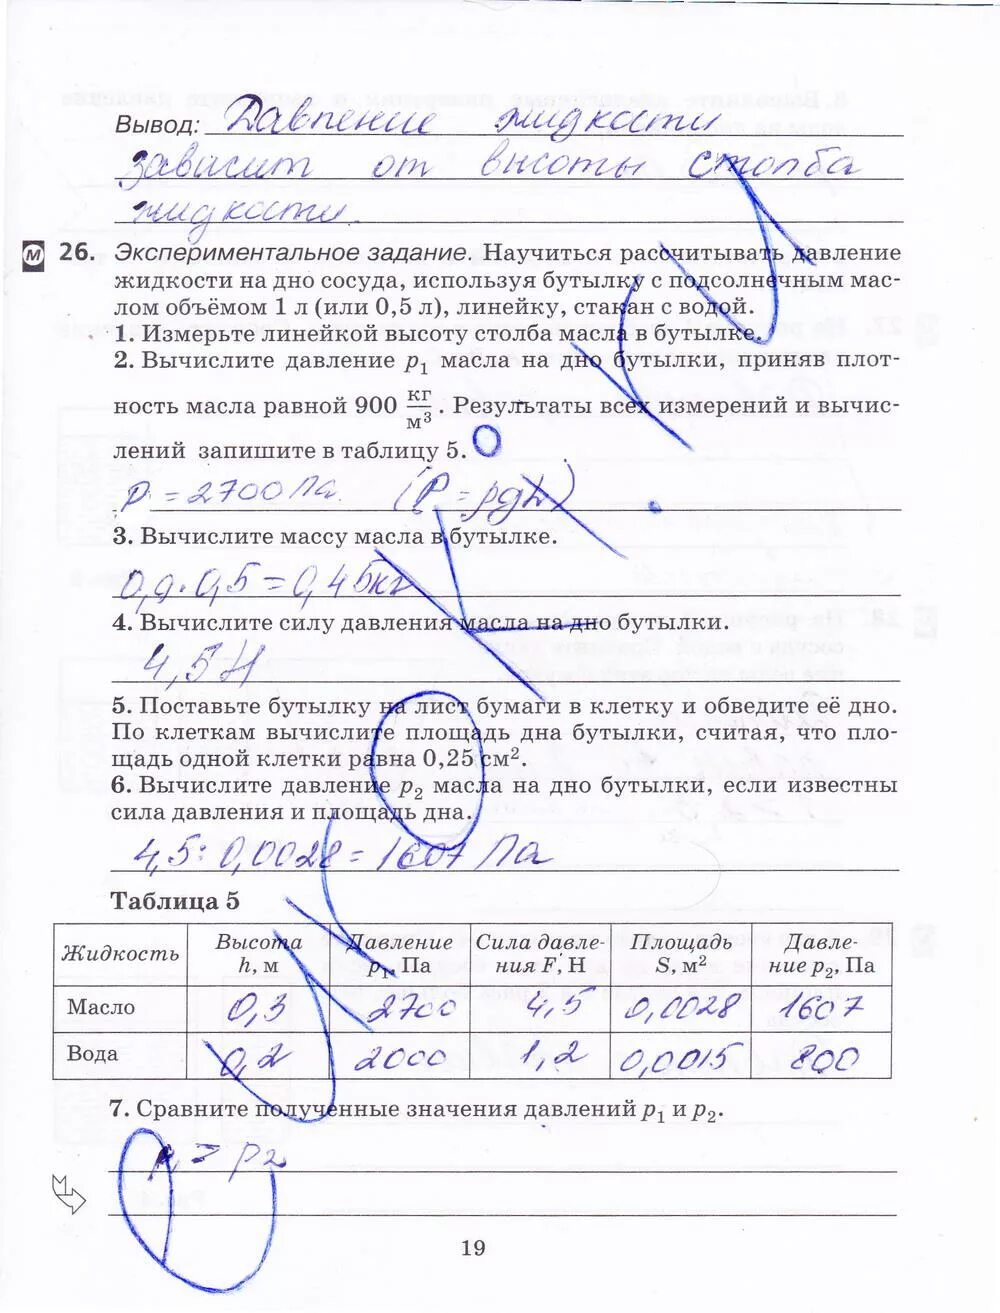 Вывод: Давление жидкости
зависит от высоты столба
жидкости.
М 26. Экспериментальное задание. Научиться рассчитывать давление
жидкости на дно сосуда, используя бутылку с подсолнечным мас-
лом объёмом 1 л (или 0,5 л), линейку, стакан с водой.
1. Измерьте линейкой высоту столба масла в бутылке.
2. Вычислите давление p₁ масла на дно бутылки, приняв плот-
ность масла равной 900 кг/м³. Результаты всех измерений и вычис-
лений запишите в таблицу 5.
P = 2700 Па. (P = ρgh)
3. Вычислите массу масла в бутылке.
0,9·0,5 = 0,45кг
4. Вычислите силу давления масла на дно бутылки.
4,5 Н
5. Поставьте бутылку на лист бумаги в клетку и обведите её дно.
По клеткам вычислите площадь дна бутылки, считая, что пло-
щадь одной клетки равна 0,25 см².
6. Вычислите давление p₂ масла на дно бутылки, если известны
сила давления и площадь дна.
4,5 : 0,0028 = 1607 Па
Таблица 5
Жидкость Высота h, м Давление p₁, Па Сила давле-ния F, Н Площадь S, м² Давле-ние p₂, Па
Масло 0,3 2700 4,5 0,0028 1607
Вода 0,2 2000 1,2 0,0015 800
7. Сравните полученные значения давлений p₁ и p₂.
p₁ > p₂
19